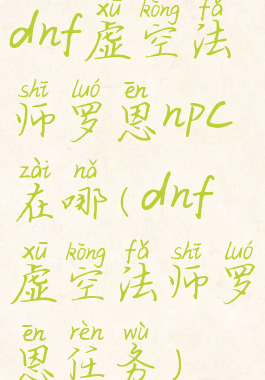 xū kōng fǎ
dnf虚空法
shī luó ēn
师罗恩npc
zài nǎ
在哪(dnf
xū kōng fǎ shī luó
虚空法师罗
ēn rèn wù
恩任务)